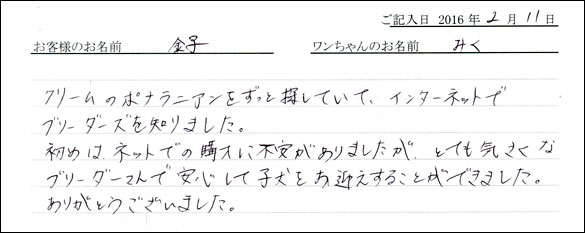 ご記入日 2016年2月11日
お客様のお名前 金子 ワンちゃんのお名前 みく
クリームのポメラニアンをずっと探していて、インターネットで
ブリーダーズを知りました。
初めは、ネットでの購入に不安がありましたが、とても気さくな
ブリーダーさんで安心して子犬をお迎えすることができました。
ありがとうございました。